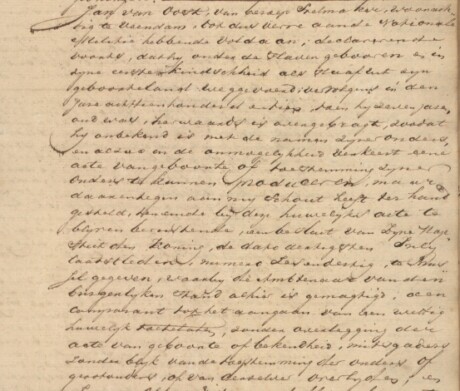 Jan van Oort, van beroep Seelmaker, woonach-
tig te Veendam, tot dus verre aan de Nationale
Militie hebbende voldaan; declarerende
voorts, dat hij onder de Slaven geboren en in
zyne eerste kindscheid als Slaaf uit zyn
geboorteland weggevoerd, vervolgens in den
Jare achttienhonderd en tien, toen hy zeven jaren
oud was, herwaarts is overgebragt, zoodat
hy onbekend is met de namen zyner ouders,
en alzoo in de onmogelykheid verkeert eene
acte van geboorte of toestemming zyner
ouders te kunnen produceren, maar
daarentegen aan my Schout heeft ter hand
gesteld, teneinde by deze huwelyks acte te
blyven berustende, een besluit van Zyne Maje-
steit den Koning, de dato dertigsten July
laatstleden, numero
gegeven, waarby de Ambtenaar van den
burgerlyken Stand alhier is gemagtigd, den
comparant tot het aangaan van een wettig
huwelyk toetelaten, zonder overlegging der
acte van geboorte of bekendheid, mitsgaders
zonder blyk van de toestemming der ouders of
grootouders, of van derzelver overlyden; en